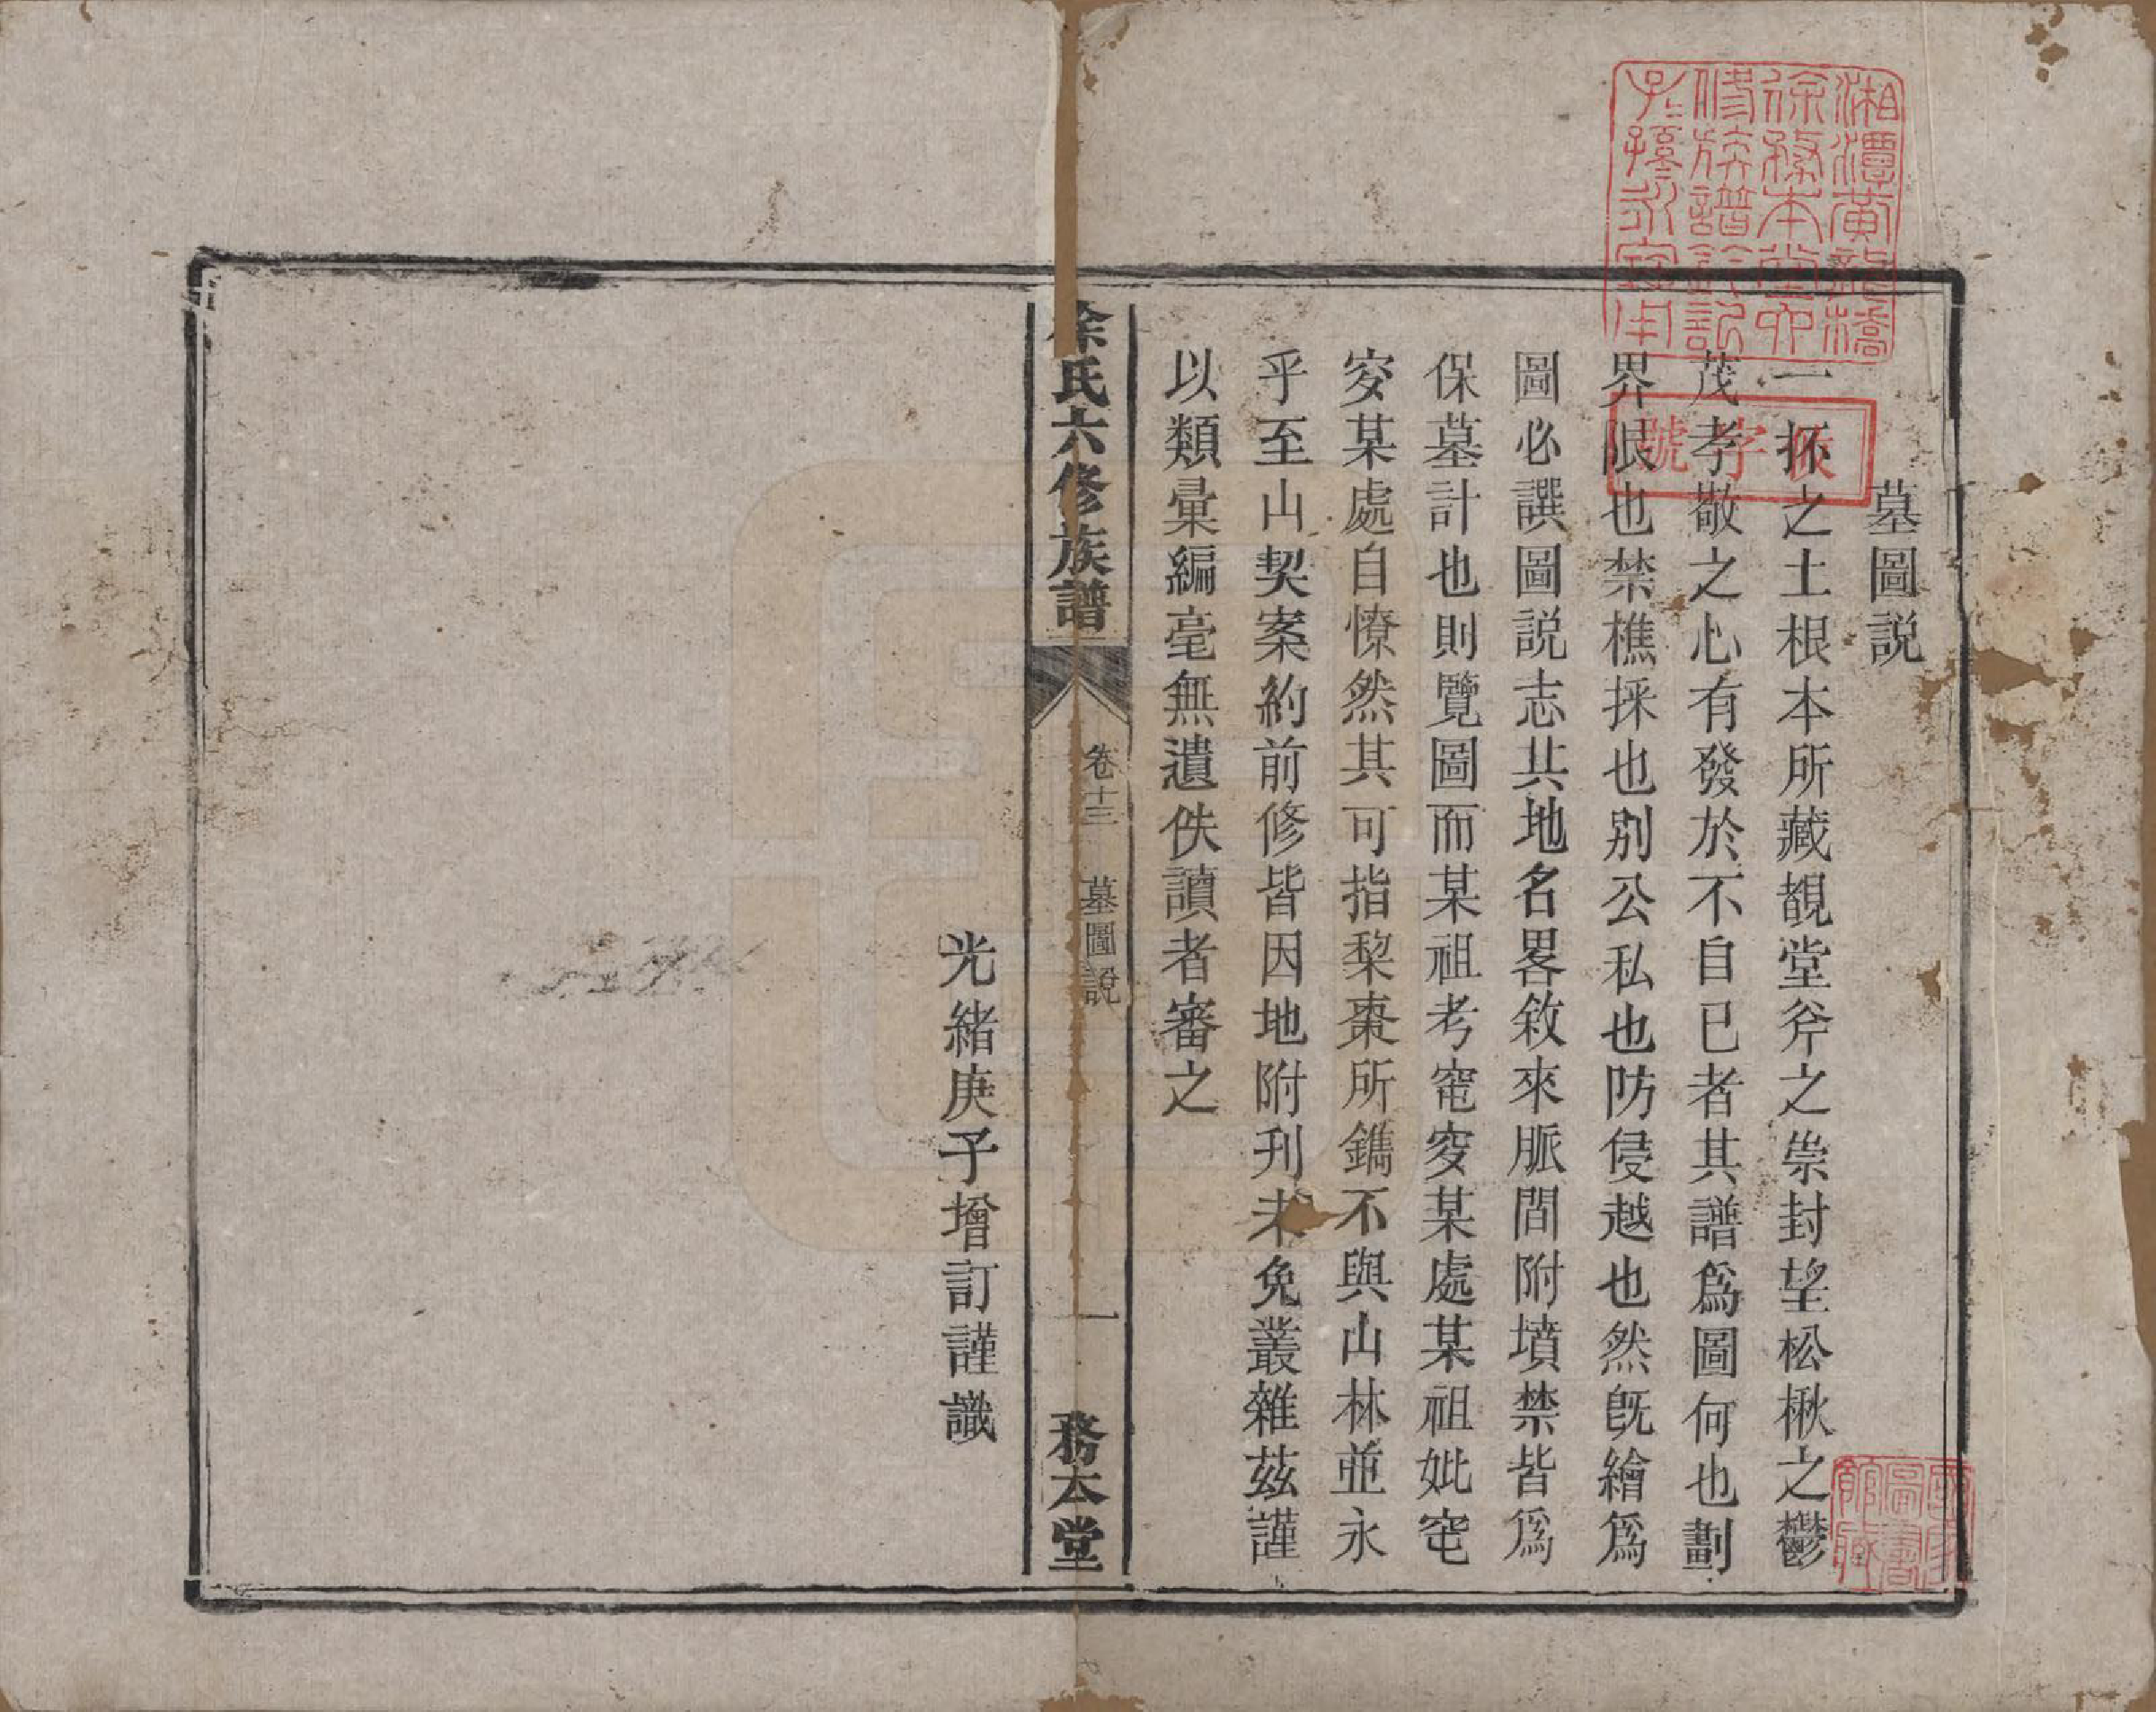 墓圖説
一抔之土根本所藏覩堂斧之崇封望松楸之鬱
茂孝敬之心有發於不自已者其譜爲圖何也劃
界限也禁樵採也別公私也防侵越也然既繪爲
圖必譔圖説志其地名畧敘來脈間附墳禁皆爲
保墓計也則覽圖而某祖考窀穸某處某祖妣窀
穸某處自憭然其可指棃棗所鐫不與山林並永
乎至山契案約前修皆因地附刋未免叢雜茲謹
以類彙編毫無遺佚讀者審之
徐氏六修族譜
卷十三
墓圖說
一
務本堂
光緒庚子增訂謹識
湘潭黄龍橋
徐務本堂六
修族譜訖
子孫永寶用
字號
國家
圖書
館藏